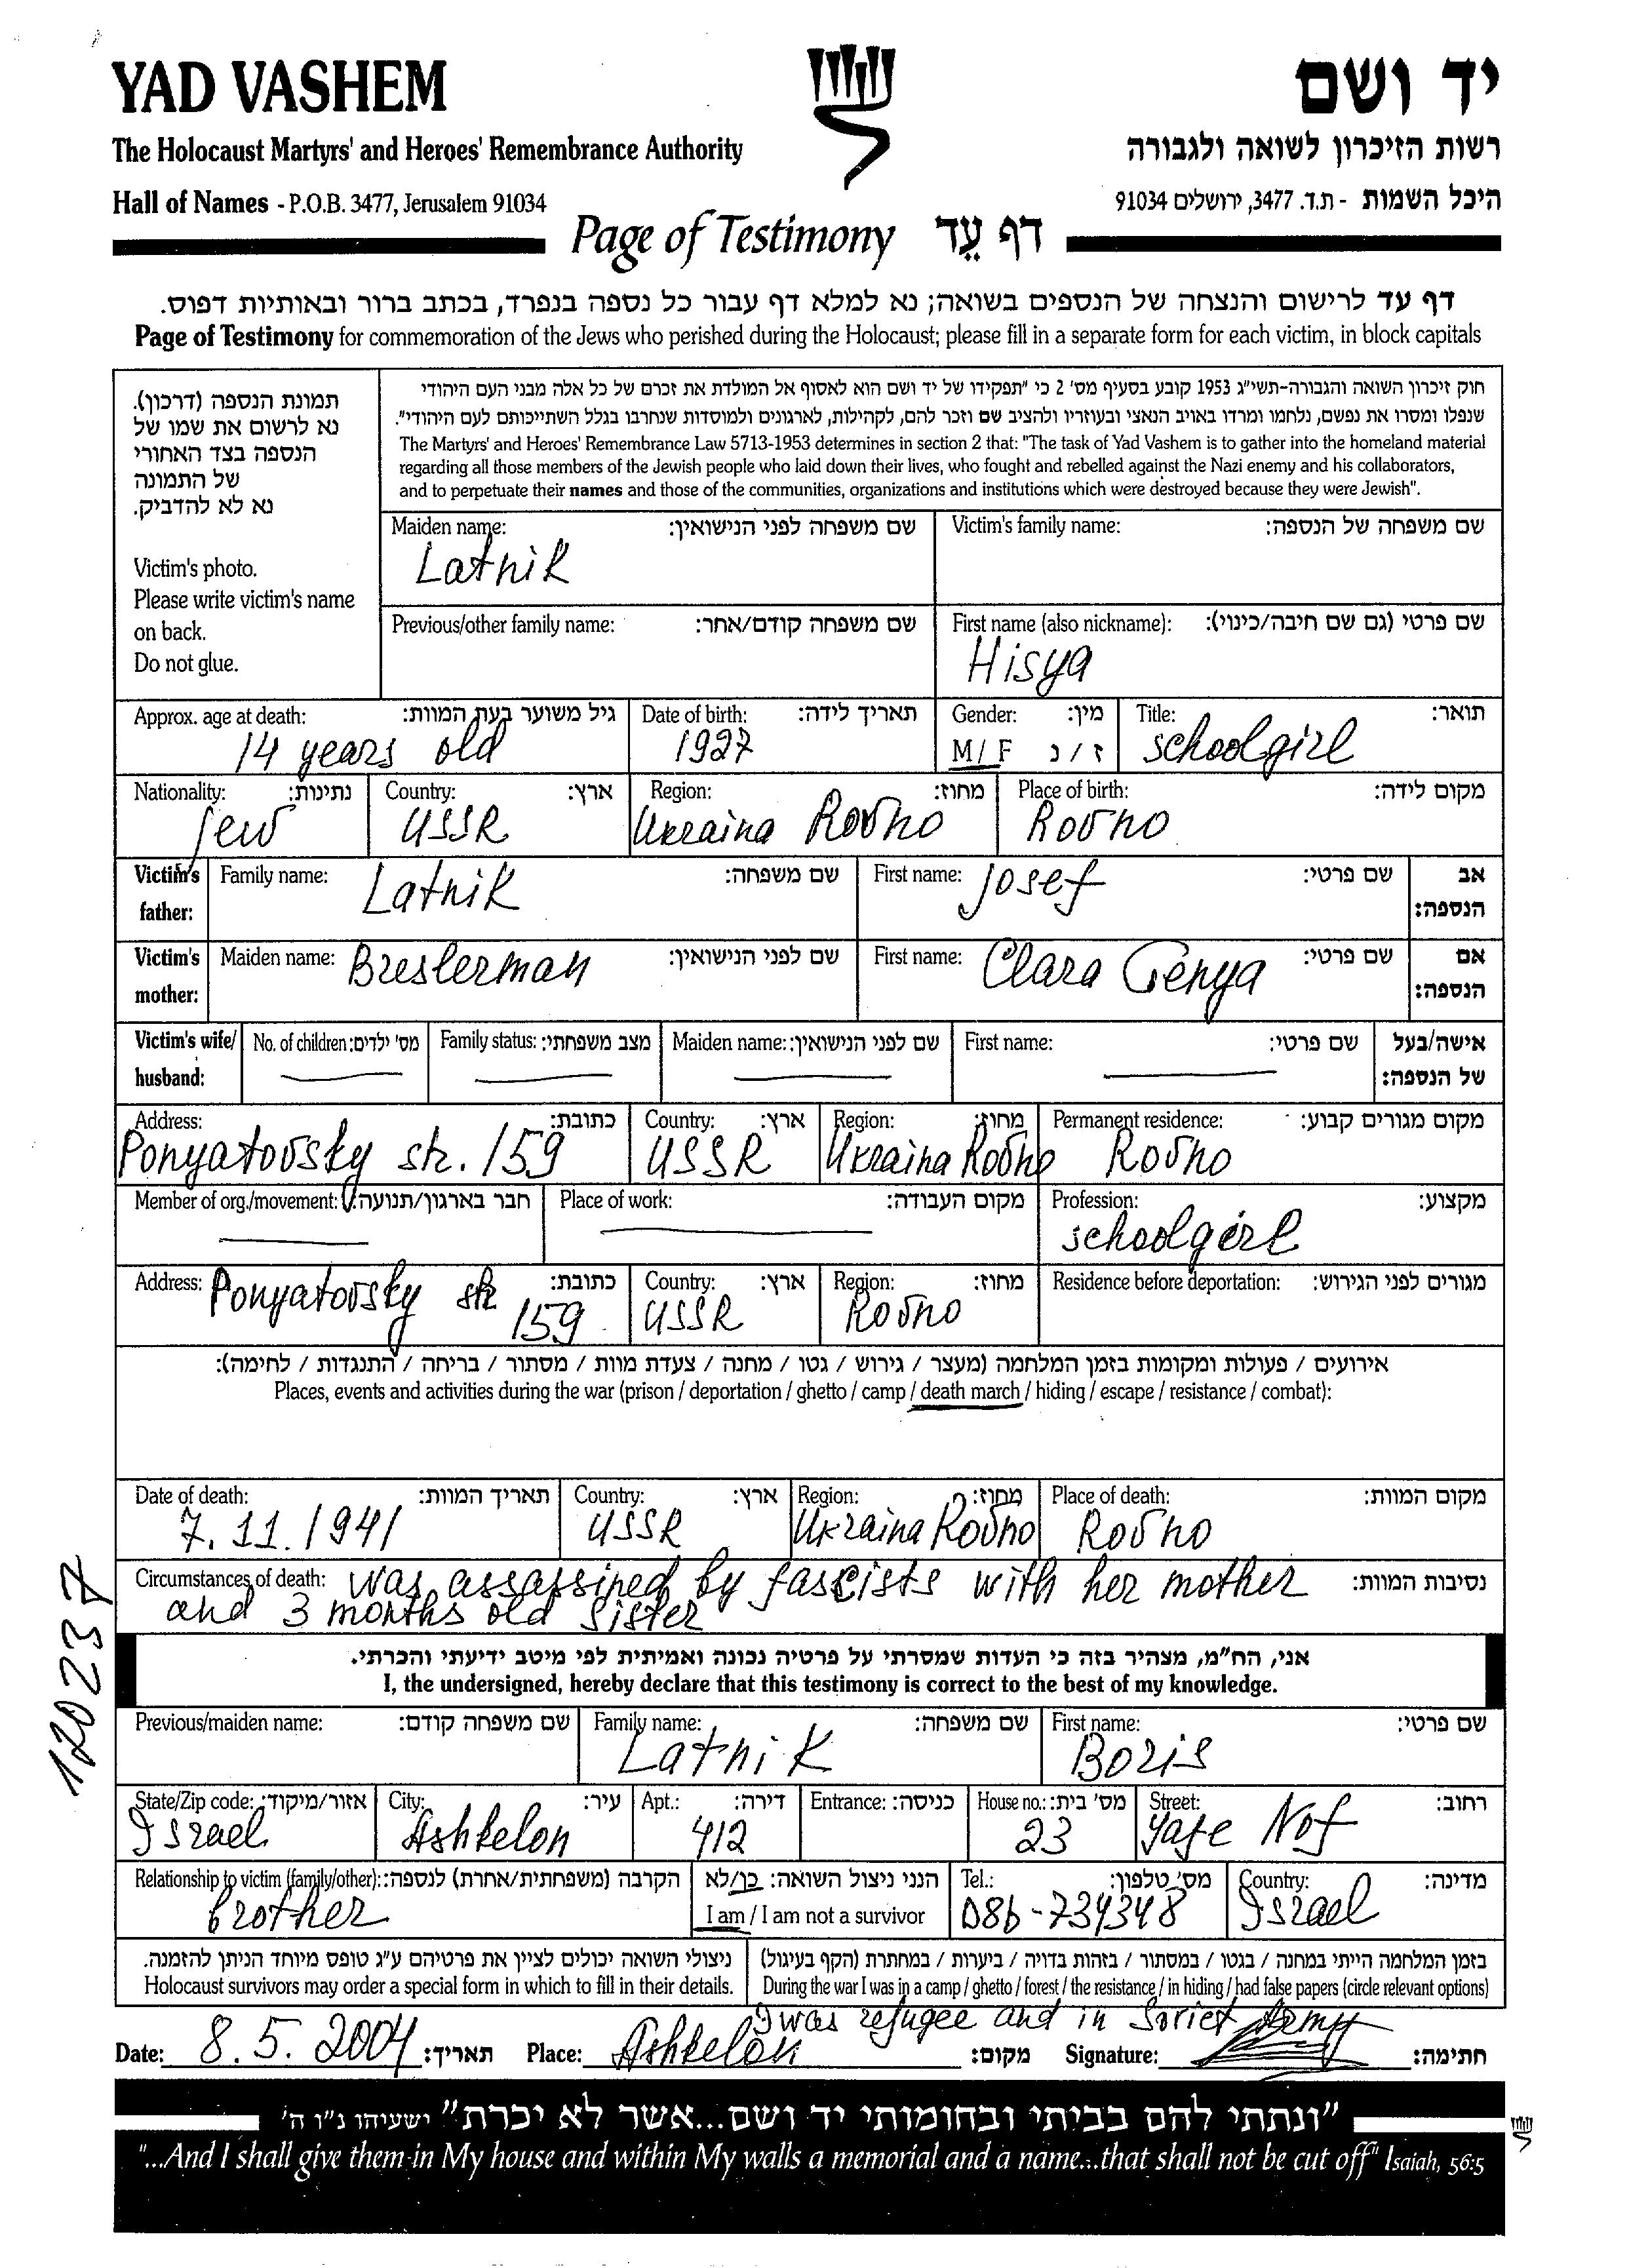 YAD VASHEM
יד ושם
The Holocaust Martyrs' and Heroes' Remembrance Authority
רשות הזיכרון לשואה ולגבורה
Hall of Names - P.O.B. 3477, Jerusalem 91034
היכל השמות - ת.ד. 3477, ירושלים 91034
Page of Testimony דף עֵד
דף עד לרישום והנצחה של הנספים בשואה; נא למלא דף עבור כל נספה בנפרד, בכתב ברור ובאותיות דפוס.
Page of Testimony for commemoration of the Jews who perished during the Holocaust; please fill in a separate form for each victim, in block capitals
תמונת הנספה (דרכון).
נא לרשום את שמו של
הנספה בצד האחורי
של התמונה
נא לא להדביק.
Victim's photo.
Please write victim's name
on back.
Do not glue.
חוק זיכרון השואה והגבורה-תשי"ג 1953 קובע בסעיף מס' 2 כי "תפקידו של יד ושם הוא לאסוף אל המולדת את זכרם של כל אלה מבני העם היהודי
שנפלו ומסרו את נפשם, נלחמו ומרדו באויב הנאצי ובעוזריו ולהציב שם וזכר להם, לקהילות, לארגונים ולמוסדות שנחרבו בגלל השתייכותם לעם היהודי".
The Martyrs' and Heroes' Remembrance Law 5713-1953 determines in section 2 that: "The task of Yad Vashem is to gather into the homeland material
regarding all those members of the Jewish people who laid down their lives, who fought and rebelled against the Nazi enemy and his collaborators,
and to perpetuate their names and those of the communities, organizations and institutions which were destroyed because they were Jewish".
Maiden name: שם משפחה לפני הנישואין: Victim's family name: שם משפחה של הנספה:
Latnik
Previous/other family name: שם משפחה קודם/אחר: First name (also nickname): שם פרטי (גם שם חיבה/כינוי):
Hisya
Approx. age at death: גיל משוער בעת המוות: Date of birth: תאריך לידה: Gender: מין: Title: תואר:
14 years old 1927 M/F ז/נ schoolgirl
Nationality: נתינות: Country: ארץ: Region: מחוז: Place of birth: מקום לידה:
Jew USSR Ukraina Rovno Rovno
Victim's father: Family name: Latnik שם משפחה: First name: Josef שם פרטי: אב הנספה:
Victim's mother: Maiden name: Breslerman שם לפני הנישואין: First name: Clara Genya שם פרטי: אם הנספה:
Victim's wife/ husband: No. of children: מס' ילדים: Family status: מצב משפחתי: Maiden name: שם לפני הנישואין: First name: שם פרטי: אישה/בעל של הנספה:
Address: כתובת: Country: ארץ: Region: מחוז: Permanent residence: מקום מגורים קבוע:
Ponyatovsky str. 159 USSR Ukraina Rovno Rovno
Member of org./movement: חבר בארגון/תנועה: Place of work: מקום העבודה: Profession: מקצוע:
schoolgirl
Address: כתובת: Country: ארץ: Region: מחוז: Residence before deportation: מגורים לפני הגירוש:
Ponyatovsky str 159 USSR Rovno
אירועים / פעולות ומקומות בזמן המלחמה (מעצר / גירוש / גטו / מחנה / צעדת מוות / מסתור / בריחה / התנגדות / לחימה):
Places, events and activities during the war (prison / deportation / ghetto / camp / death march / hiding / escape / resistance / combat):
Date of death: תאריך המוות: Country: ארץ: Region: מחוז: Place of death: מקום המוות:
7.11.1941 USSR Ukraina Rovno Rovno
Circumstances of death: was assassined by fascists with her mother נסיבות המוות:
and 3 months old sister
אני, הח"מ, מצהיר בזה כי העדות שמסרתי על פרטיה נכונה ואמיתית לפי מיטב ידיעתי והכרתי.
I, the undersigned, hereby declare that this testimony is correct to the best of my knowledge.
120237
Previous/maiden name: שם משפחה קודם: Family name: שם משפחה: First name: שם פרטי:
Latnik Boris
State/Zip code: אזור/מיקוד: City: עיר: Apt.: דירה: Entrance: כניסה: House no.: מס' בית: Street: רחוב:
Israel Ashkelon 412 23 Yafe Nof
Relationship to victim (family/other): הקרבה (משפחתית/אחרת) לנספה: הנני ניצול השואה: כן/לא Tel.: מס' טלפון: Country: מדינה:
brother I am / I am not a survivor 086-734348 Israel
ניצולי השואה יכולים לציין את פרטיהם ע"ג טופס מיוחד הניתן להזמנה. בזמן המלחמה הייתי במחנה / בגטו / במסתור / בזהות בדויה / ביערות / במחתרת (הקף בעיגול)
Holocaust survivors may order a special form in which to fill in their details. During the war I was in a camp / ghetto / forest / the resistance / in hiding / had false papers (circle relevant options)
I was refugee and in Soviet Army
Date: 8.5.2004 תאריך: Place: Ashkelon מקום: Signature: חתימה:
"ונתתי להם בביתי ובחומותי יד ושם...אשר לא יכרת" ישעיהו נ"ו ה'
"...And I shall give them in My house and within My walls a memorial and a name...that shall not be cut off" Isaiah, 56:5